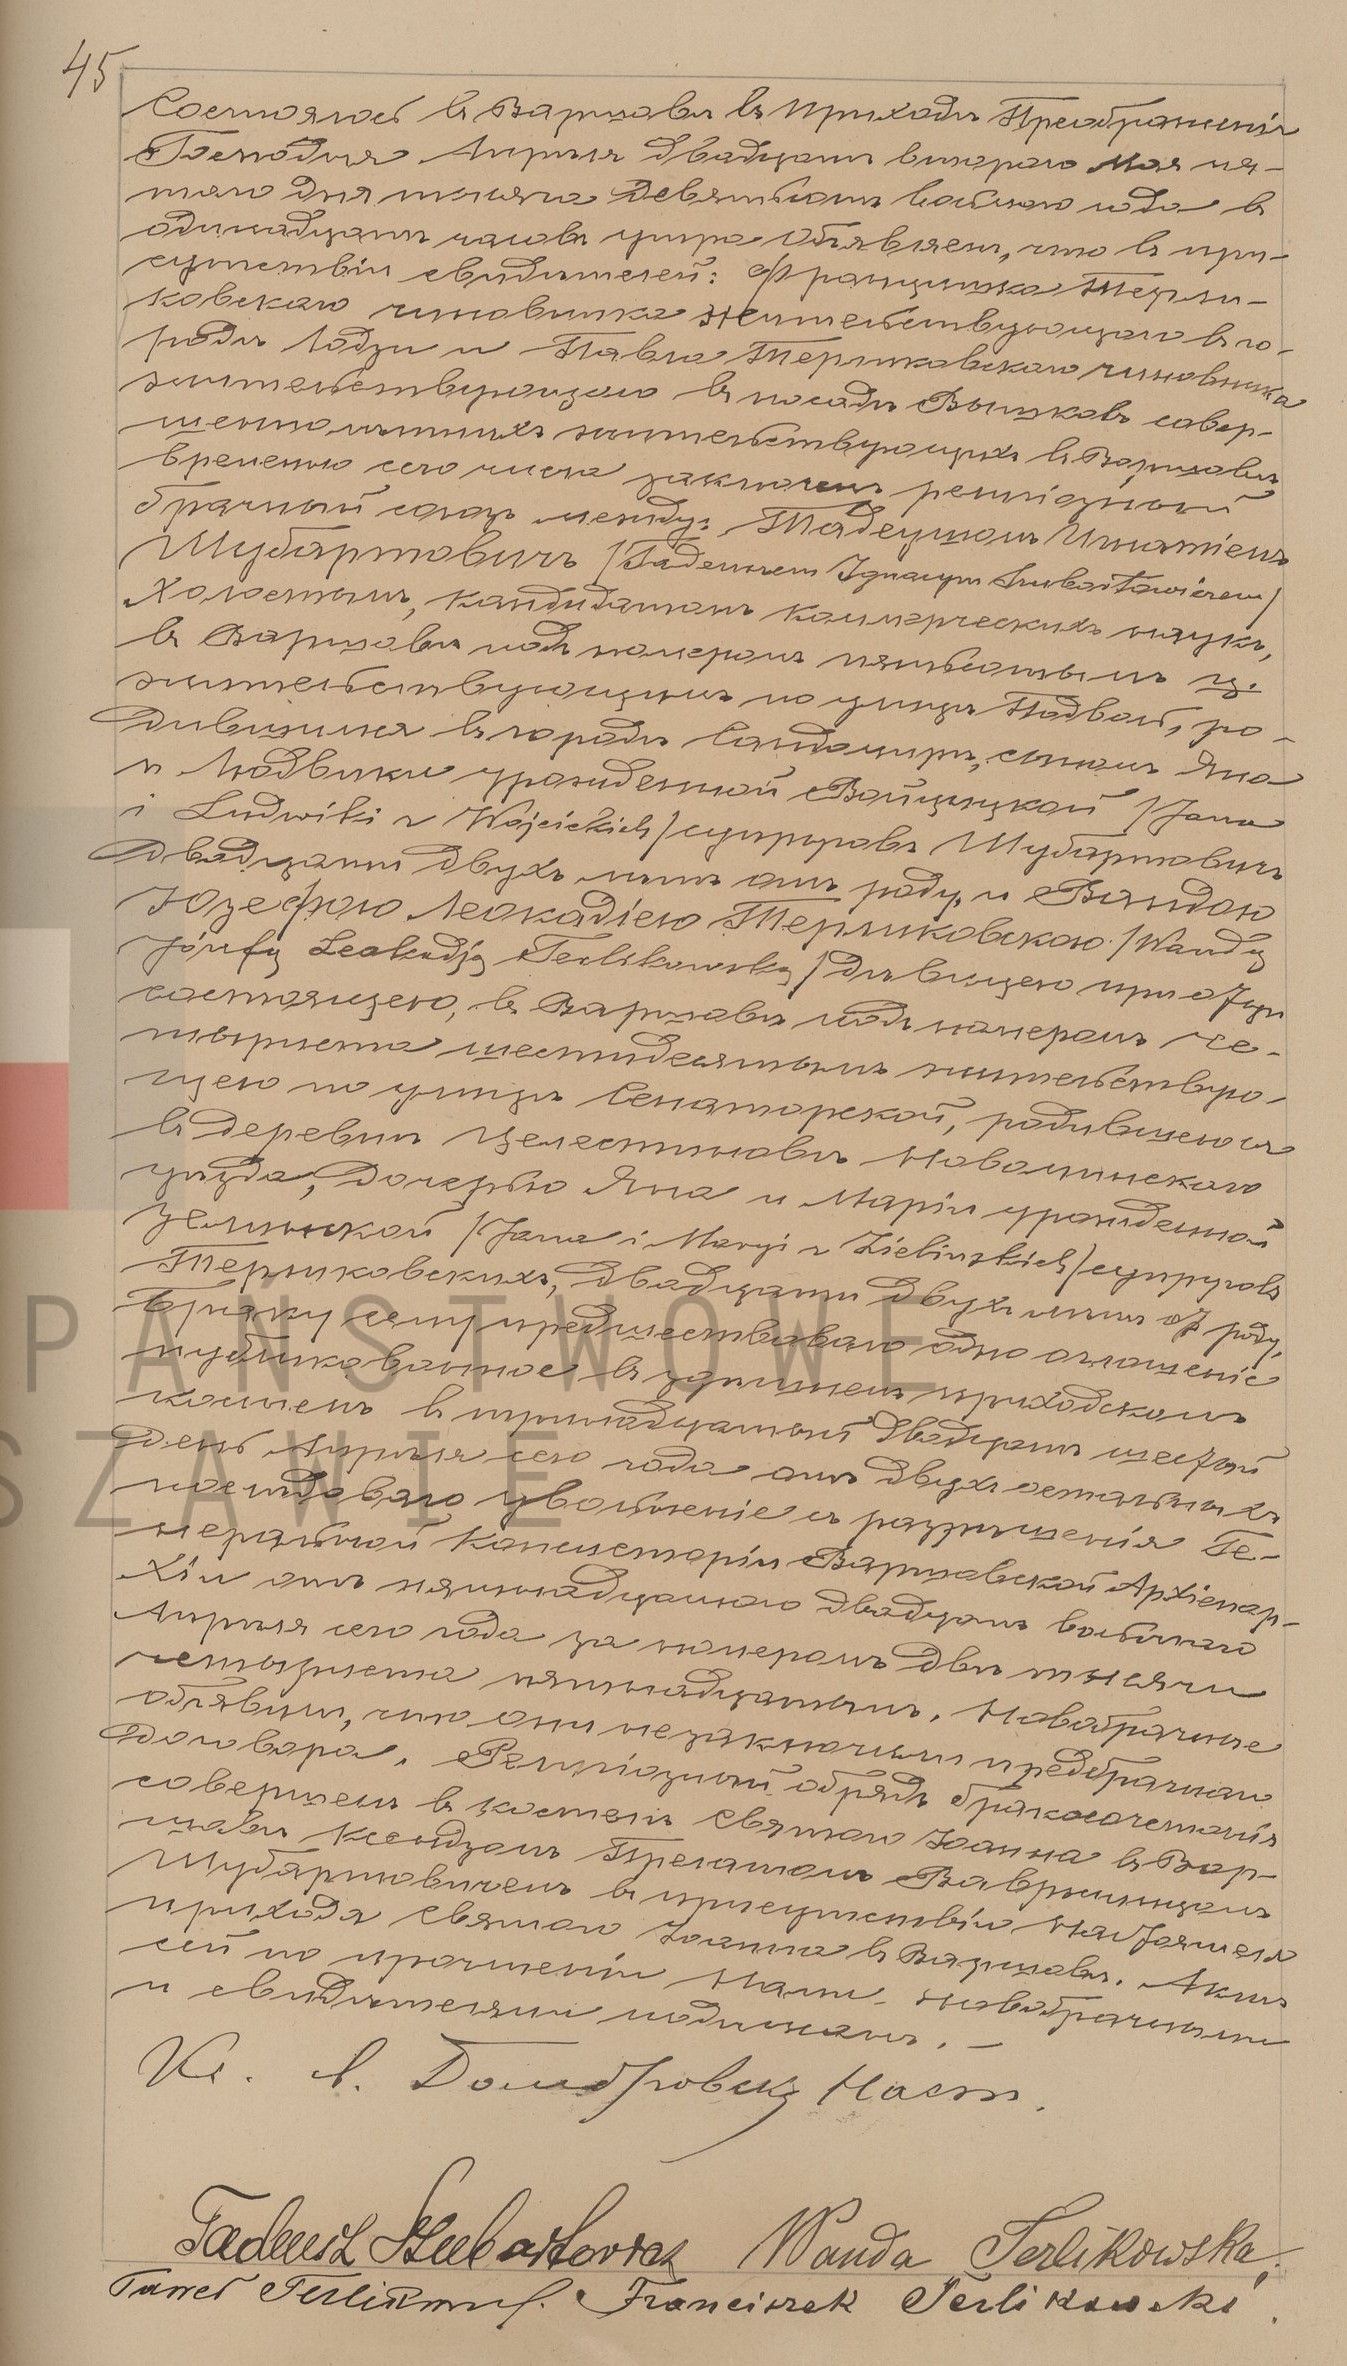 45
Состоялось въ Варшавѣ въ приходѣ Преображенія
Господня Апрѣля двадцать второго Мая пя-
таго дня тысяча девятьсотъ восьмого года въ
одинадцать часовъ утра Объявляемъ, что въ при-
сутствіи свидѣтелей: Францишка Терли-
ковскаго чиновника жительствующаго въ го-
родѣ Лодзи и Павла Терликовскаго чиновника
жительствующаго въ посадѣ Вышковъ совер-
шеннолѣтнихъ жительствующихъ въ Варшавѣ
временно сего числа заключенъ религіозный
брачный союзъ между: Тадеушомъ Игнатіемъ
Шубартовичъ /Tadeuszem Ignacym Szubartowiczem/
холостымъ, кандидатомъ коммерческихъ наукъ,
въ Варшавѣ подъ номеромъ пятьсотымъ ц.
жительствующимъ по улицѣ Подваль, ро-
дившимся въ городѣ Сандомирѣ, сыномъ Яна
и Людвики урожденной Войцицкой /Jana
i Ludwiki z Wójcickich/ супруговъ Шубартовичъ
двадцати двухъ лѣтъ отъ роду, и Вандою
Юзефою Леокадіею Терликовскою /Wandą
Józefą Leokadją Terlikowską/ дѣвицею при отцѣ
состоящею, въ Варшавѣ подъ номеромъ че-
тырнста шестидесятымъ жительствую-
щею по улицѣ Сенаторской, родившеюся
въ деревнѣ Целестиновъ Новоминскаго
уѣзда, дочерью Яна и Маріи урожденной
Зелинской /Jana i Maryi z Zielinskich/ супруговъ
Терликовскихъ, двадцати двухъ лѣтъ отъ роду.
Браку сему предшествовало одно оглашеніе
публикованное въ здѣшнемъ приходскомъ
костелѣ въ тринадцатый двадцать шестой
день Апрѣля сего года отъ двухъ остальныхъ
послѣдовало увольненіе съ разрѣшенія Ге-
неральной Консисторіи Варшавской Архіепар-
хіи отъ пятнадцатаго двадцать восьмого
Апрѣля сего года за номеромъ двѣ тысячи
четырнста пятнадцатымъ. Новобрачные
объявили, что они незаключили предбрачнаго
договора. Религіозный обрядъ бракосочетанія
совершенъ въ костелѣ Святаго Іоанна въ Вар-
шавѣ Ксендзомъ Прелатомъ Вавржинцемъ
Шубартовичемъ въ присутствіи Настоятеля
прихода Святаго Іоанна въ Варшавѣ. Актъ
сей по прочтеніи Нами новобрачными
и свидѣтелями подписанъ. –
Кс. А. Домбровскі Наст.
Tadeusz Szubartowicz Wanda Terlikowska.
Paweł Terlikowski. Franciszek Terlikowski.
PAŃSTWOWE
SZAWIE